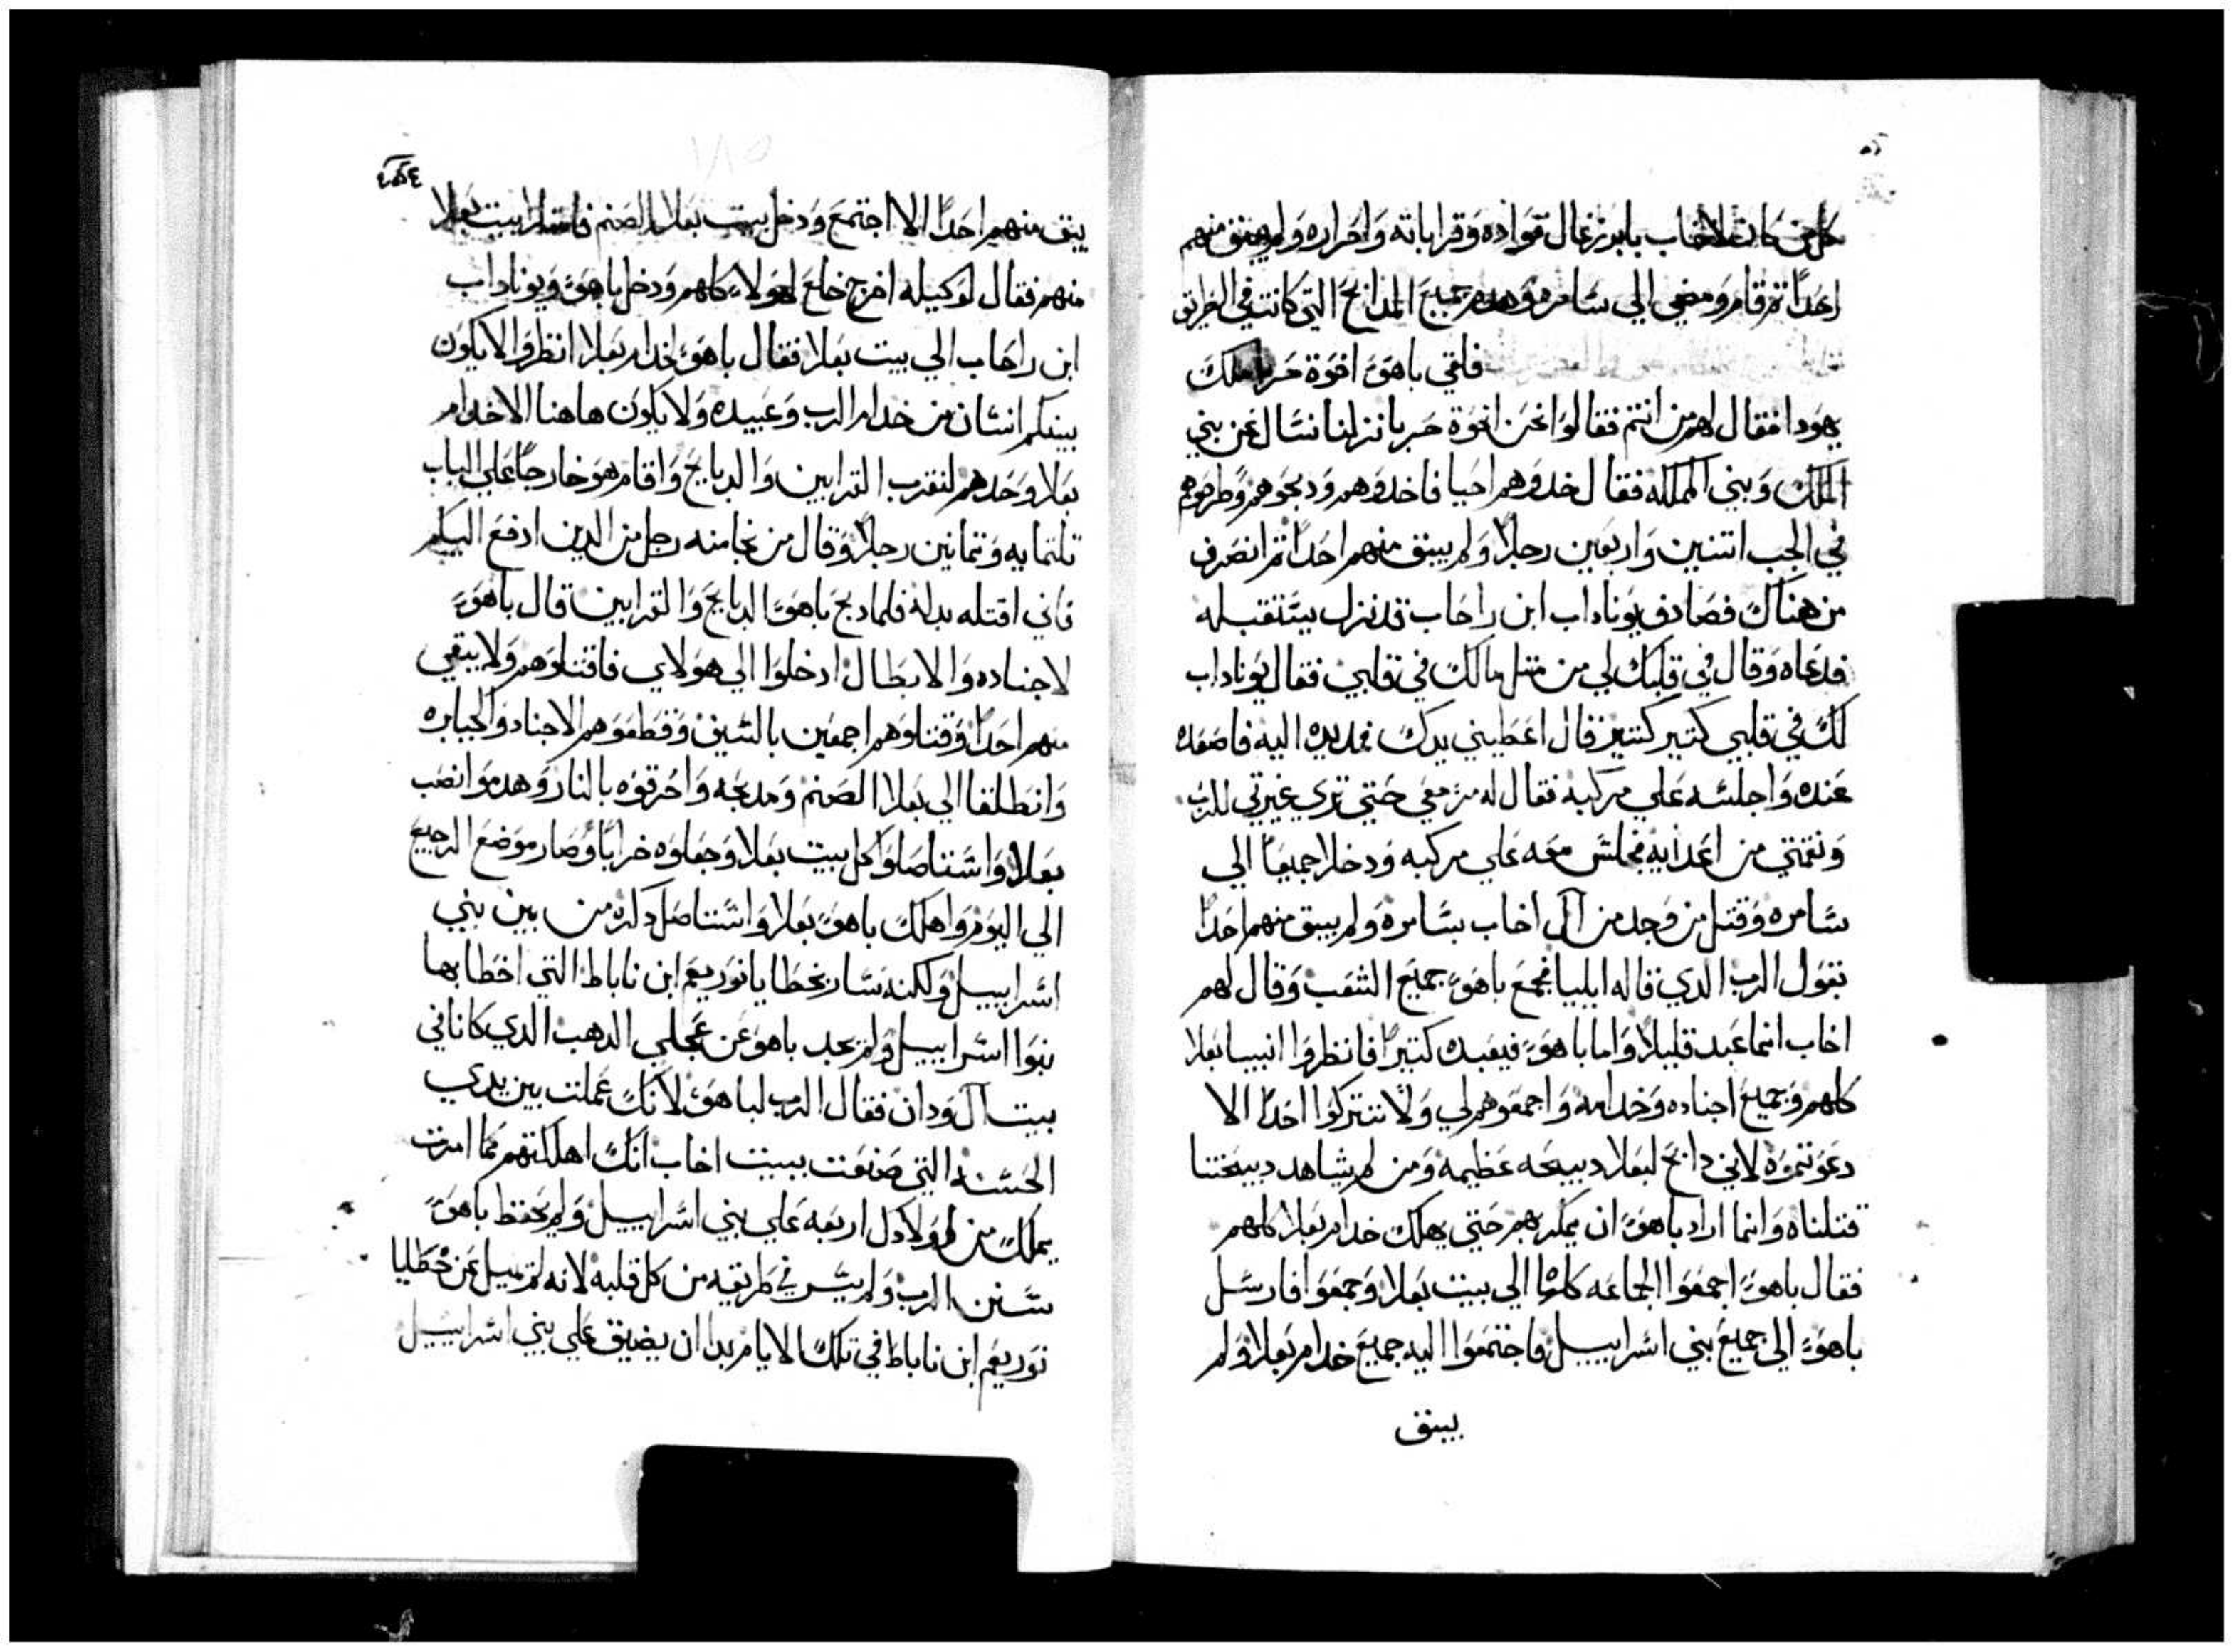 كل من كان لاخاب بايزرعال قواده وقراباته واحراره ولم يبق منهم
احدًا ثم قام ومضي الي سامره وهدم جميع المدابح التي كانت في الطريق
فلقي ياهو اخوة حزيا ملك
يهودا فقال لهم من انتم فقالوا نحن اخوة حزيا نزلنا نسال عن بني
الملك وبني الملكه فقال خدوهم احيا فاخدوهم ودبحوهم وطرحوهم
في الجب اتنين واربعين رجلاً ولم يبق منهم احداً ثم انصرف
من هناك فصادف يوناداب ابن راحاب قد نزل يستقبله
فدعاه وقال في قلبك لي من متل مالك في قلبي فقال يوناداب
لك في قلبي كتير كتير قال اعطيني يدك فمد يده اليه فاصعده
عنده واجلسه علي مركبه فقال له مر معي حتي تري غيرتي للرب
ونقمتي من اعدايه فجلس معه علي مركبه ودخلا جميعاً الي
سامره وقتل من وجد من آل اخاب بسامره ولم يبق منهم احداً
بقول الرب الدي قاله ايليا فجمع ياهو جميع الشعب وقال لهم
اخاب انما عبد قليلاً واما ياهو فيعبده كتيراً فانظروا انبيا بعلا
كلهم وجميع اجناده وخدامه واجمعوهم لي ولا تتركوا احداً الا
دعوتموه لاني دابح لبعلا دبيحه عظيمه ومن لم يشاهد دبيحتنا
قتلناه وانما اراد ياهو ان يمكر بهم حتي يهلك خدام بعلا كلهم
فقال ياهو اجمعوا الجماعه كلها الي بيت بعلا وجمعوا فارسل
ياهو الي جميع بني اسراييل فاجتمعوا اليه جميع خدام بعلا ولم
يبق
يبق منهم احداً الا اجتمع ودخل بيت بعلا الصنم فامتلا بيت بعلا
منهم فقال لوكيله اخرج خلع لهولاء كلهم ودخل ياهو ويوناداب
ابن راحاب الي بيت بعلا فقال ياهو لخدام بعلا انظروا الا يكون
بينكم انسان من خدام الرب وعبيده ولا يكون هاهنا الا خدام
بعلا وحدهم لنقرب القرابين والدبايح واقام هو خارجاً علي الباب
تلتمايه وتمانين رجلاً وقال من نجا منه رجل من الدين ادفع اليكم
فاني اقتله بدله فلما دبح ياهو الدبايح والقرابين قال ياهو
لاجناده والابطال ادخلوا الي هولاي فاقتلوهم ولا يبقي
منهم احداً وقتلوهم اجمعين بالسيف وقطعوهم الاجناد والجبابره
وانطلقا الي بعلا الصنم ومدبحه واحرقوه بالنار وهدموا نصب
بعلا واستاصلوا كل بيت بعلا وجعلوه خراباً وصار موضع الرجيع
الي اليوم واهلك ياهو بعلا واستاصل دكره من بين بني
اسراييل ولكنه سار بخطايا نوربعم ابن ناباط التي اخطا بها
بنوا اسراييل ولم يحد ياهو عن عجلي الدهب الدي كانا في
بيت آل ودان فقال الرب لياهو لانك عملت بين يدي
الحسنه التي صنعت ببيت اخاب انك اهلكتهم كما امرت
يملك من اولادك اربعه علي بني اسراييل ولم يحفظ ياهو
سنن الرب ولم يسر في طريقه من كل قلبه لانه لم يميل عن خطايا
نوربعم ابن ناباط في تلك الايام بدا ان يضيق علي بني اسراييل